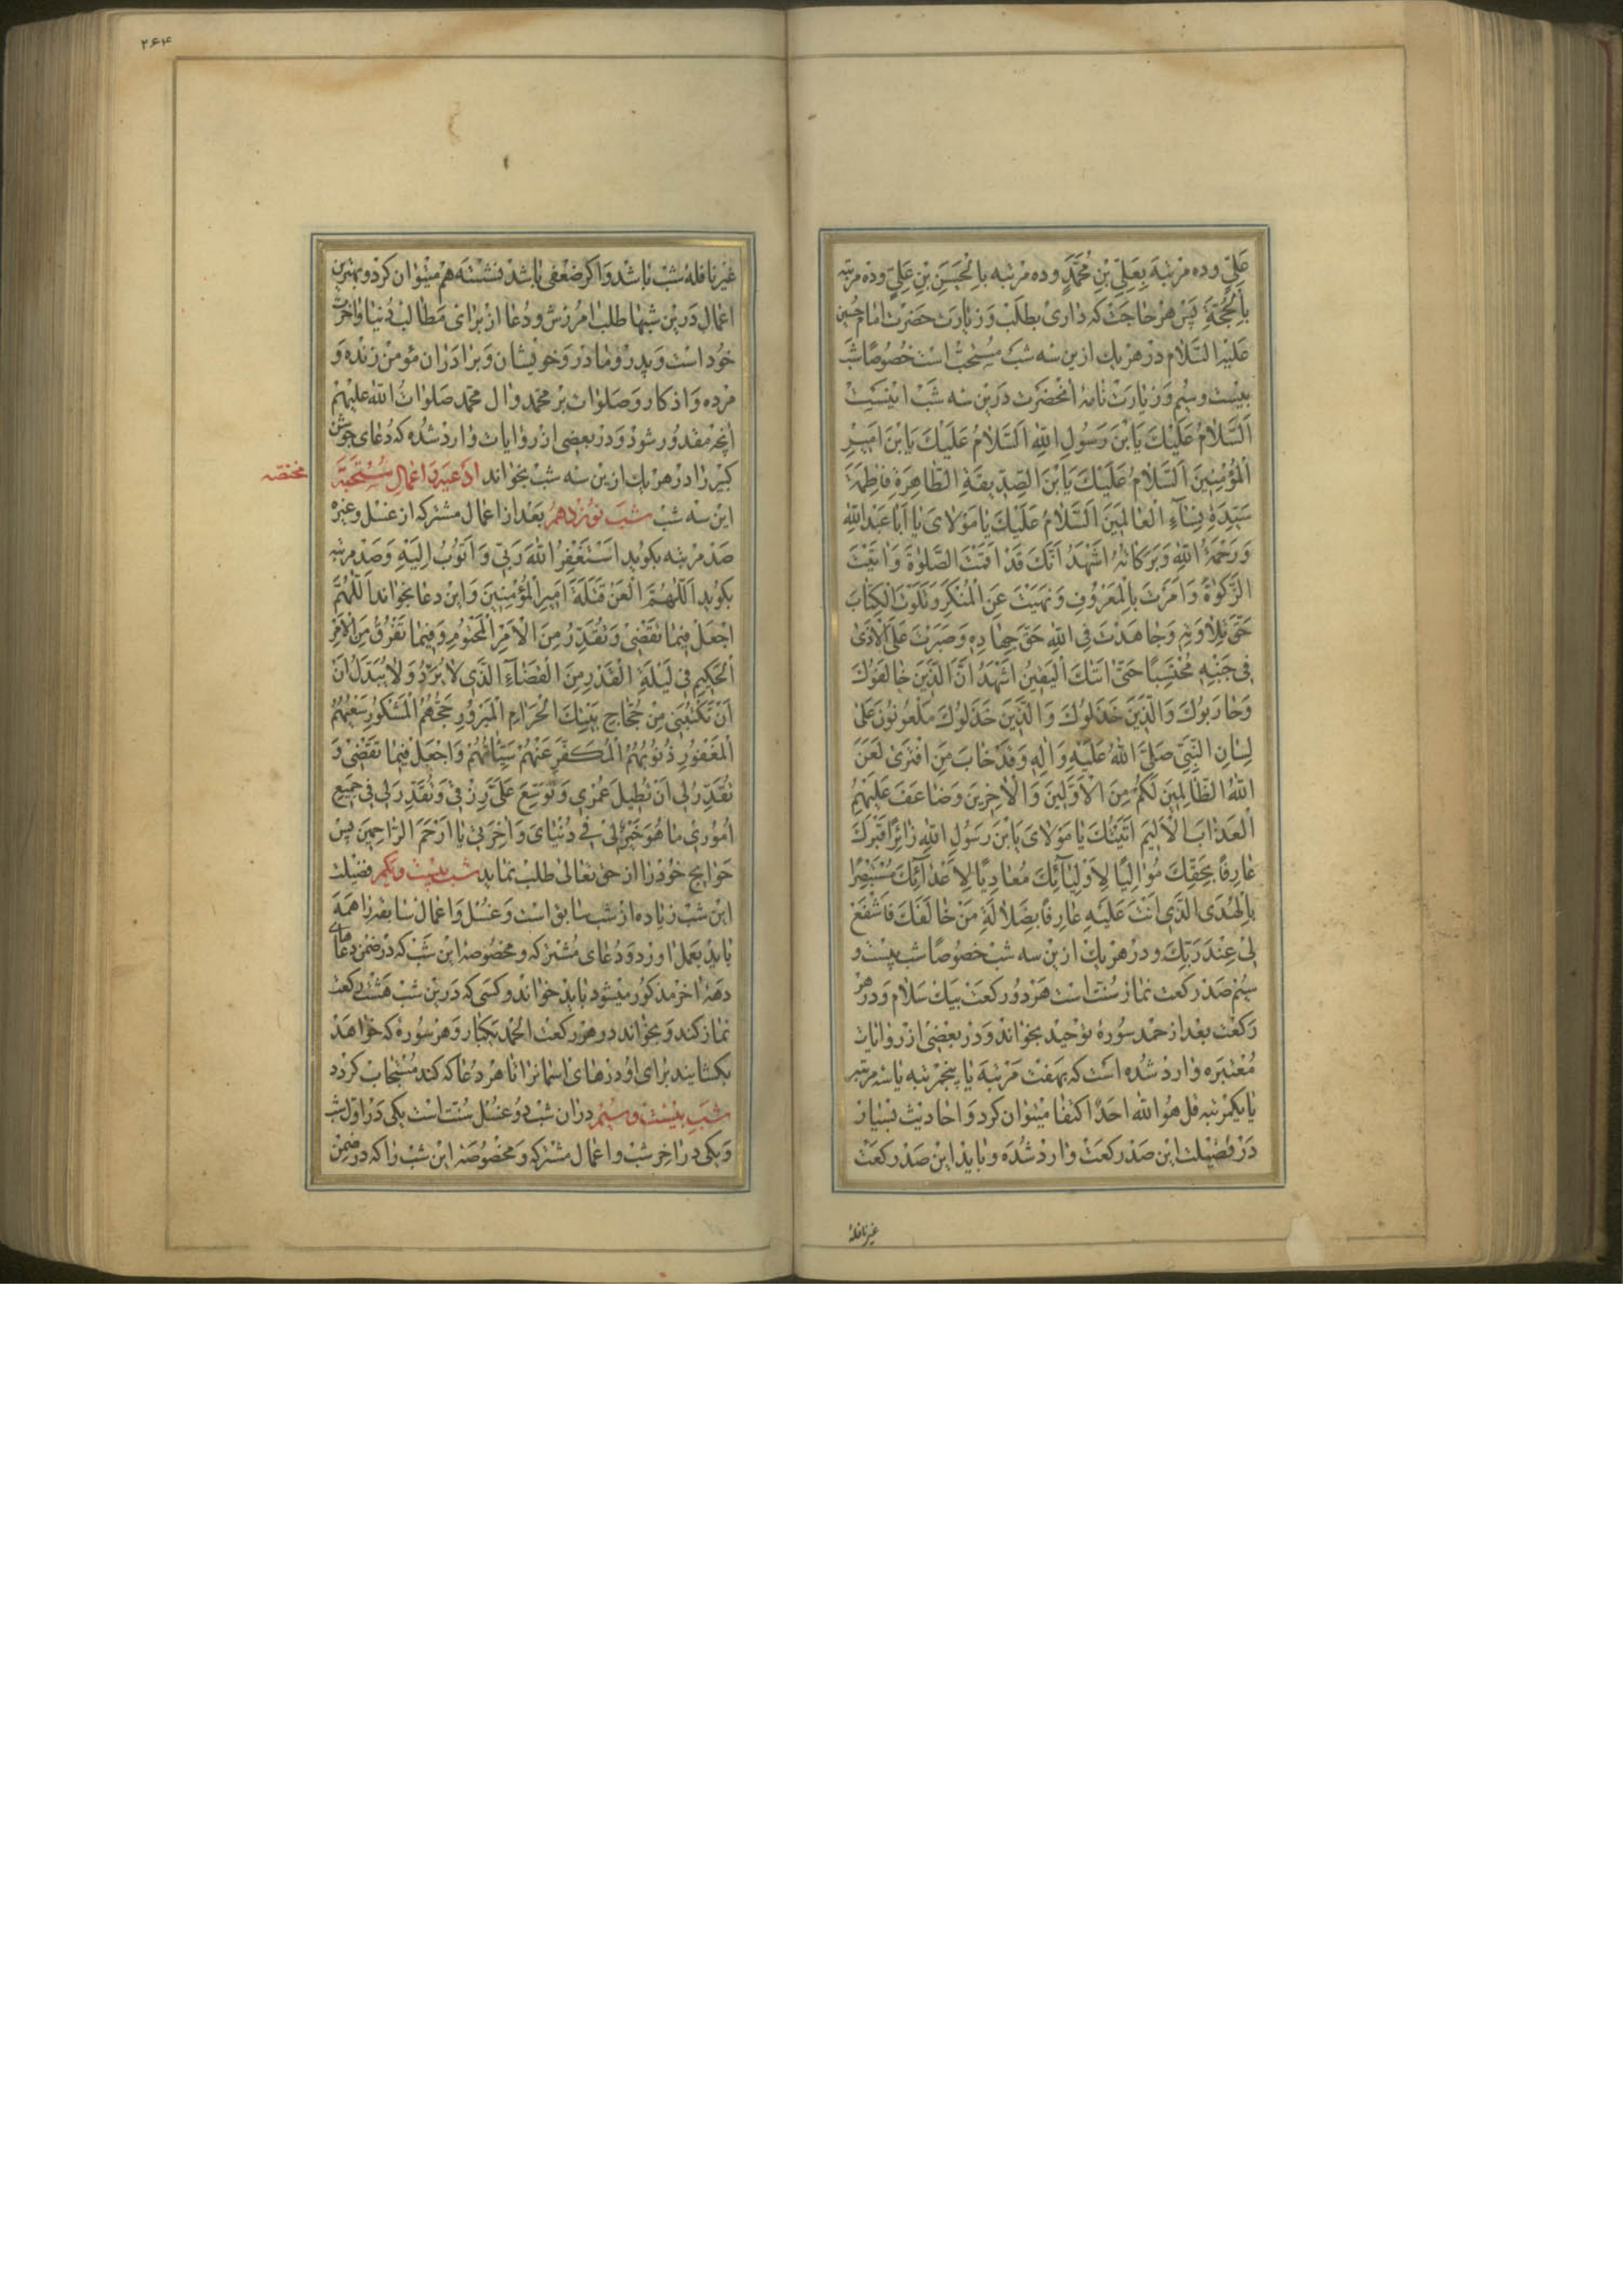 عَلِيٍّ وده مرتبه بِعَلِيِّ بْنِ مُحَمَّدٍ وده مرتبه بِالْحَسَنِ بْنِ عَلِيٍّ وده مرتبه
بِالْحُجَّةِ پس هر حاجت که داری بطلب وزیارت حضرت امام حسین
علیه السلام در هر یك ازین سه شب مستحب است خصوصًا شب
بیست وسیم وزیارت نامهٔ انحضرت درین سه شب اینست
اَلسَّلامُ عَلَيْكَ يَابْنَ رَسُولِ اللهِ اَلسَّلامُ عَلَيْكَ يَابْنَ اَمِيرِ
الْمُؤْمِنِينَ اَلسَّلامُ عَلَيْكَ يَابْنَ الصِّدِّيقَةِ الطَّاهِرَةِ فَاطِمَةَ
سَيِّدَةِ نِسَآءِ الْعَالَمِينَ اَلسَّلامُ عَلَيْكَ يَا مَوْلَايَ يَا اَبَا عَبْدِ اللهِ
وَرَحْمَةُ اللهِ وَبَرَكَاتُهُ اَشْهَدُ اَنَّكَ قَدْ اَقَمْتَ الصَّلٰوةَ وَاٰتَيْتَ
الزَّكٰوةَ وَاَمَرْتَ بِالْمَعْرُوفِ وَنَهَيْتَ عَنِ الْمُنْكَرِ وَتَلَوْتَ الْكِتَابَ
حَقَّ تِلَاوَتِهِ وَجَاهَدْتَ فِي اللهِ حَقَّ جِهَادِهِ وَصَبَرْتَ عَلَى الْاَذٰى
فِي جَنْبِهِ مُحْتَسِبًا حَتّٰى اَتٰيكَ الْيَقِينُ اَشْهَدُ اَنَّ الَّذِينَ خَالَفُوكَ
وَحَارَبُوكَ وَالَّذِينَ خَذَلُوكَ وَالَّذِينَ خَذَلُوكَ مَلْعُونُونَ عَلٰى
لِسَانِ النَّبِيِّ صَلَّى اللهُ عَلَيْهِ وَاٰلِهِ وَقَدْ خَابَ مَنِ افْتَرٰى لَعَنَ
اللهُ الظَّالِمِينَ لَكُمْ مِنَ الْاَوَّلِينَ وَالْاٰخِرِينَ وَضَاعَفَ عَلَيْهِمُ
الْعَذَابَ الْاَلِيمَ اَتَيْتُكَ يَا مَوْلَايَ يَابْنَ رَسُولِ اللهِ زَائِرًا قَبْرَكَ
عَارِفًا بِحَقِّكَ مُوَالِيًا لِاَوْلِيَآئِكَ مُعَادِيًا لِاَعْدَآئِكَ مُسْتَبْصِرًا
بِالْهُدَى الَّذِي اَنْتَ عَلَيْهِ عَارِفًا بِضَلَالَةِ مَنْ خَالَفَكَ فَاشْفَعْ
لِي عِنْدَ رَبِّكَ ودر هر یك ازین سه شب خصوصًا شب بیست و
سیم صد رکعت نماز سنت است هر دو رکعت بیك سلام ودر هر
رکعت بعد از حمد سورهٔ توحید بخواند ودر بعضی از روایات
معتبره وارد شده است که بهفت مرتبه یا پنجمرتبه یا سه مرتبه
یا یکمرتبه قل هو الله احد اکتفا میتوان کرد واحادیث بسیار
در فضیلت این صد رکعت وارد شده وباید این صد رکعت
غیر نافلهٔ
۲۶۴
غیر نافلهٔ شب باشد واکر ضعفی باشد نشسته هم میتوان کرد وبهترین
اعمال درین شبها طلب امرزش ودعا از برای مطالب دنیا واخرت
خود است وپدر ومادر وخویشان وبرادران مؤمن زنده و
مرده واذکار وصلوات بر محمد وال محمد صلوات الله علیهم
انچه مقدور شود ودر بعضی از روایات وارد شده که دعای جوشن
کبیر را در هر یك ازین سه شب بخواند ادعیه و اعمال مستحبه
مختصه
این سه شب شب نوزدهم بعد از اعمال مشترکه از غسل وغیره
صد مرتبه بکوید اَسْتَغْفِرُ اللهَ رَبِّي وَاَتُوبُ اِلَيْهِ وصد مرتبه
بکوید اَللّٰهُمَّ الْعَنْ قَتَلَةَ اَمِيرِ الْمُؤْمِنِينَ واین دعا بخواند اَللّٰهُمَّ
اجْعَلْ فِيمَا تَقْضِي وَتُقَدِّرُ مِنَ الْاَمْرِ الْمَحْتُومِ وَفِيمَا تَفْرُقُ مِنَ الْاَمْرِ
الْحَكِيمِ فِي لَيْلَةِ الْقَدْرِ مِنَ الْقَضَآءِ الَّذِي لَا يُرَدُّ وَلَا يُبَدَّلُ اَنْ
اَنْ تَكْتُبَنِي مِنْ حُجَّاجِ بَيْتِكَ الْحَرَامِ الْمَبْرُورِ حَجُّهُمُ الْمَشْكُورِ سَعْيُهُمُ
الْمَغْفُورِ ذُنُوبُهُمُ الْمُكَفَّرِ عَنْهُمْ سَيِّئَاتُهُمْ وَاجْعَلْ فِيمَا تَقْضِي وَ
تُقَدِّرُ لِي اَنْ تُطِيلَ عُمْرِي وَتُوَسِّعَ عَلَيَّ رِزْقِي وَتُقَدِّرَ لِي فِي جَمِيعِ
اُمُورِي مَا هُوَ خَيْرٌ لِي فِي دُنْيَايَ وَاٰخِرَتِي يَا اَرْحَمَ الرَّاحِمِينَ پس
حوایج خود را از حق تعالی طلب نماید شب بیست ویکم فضیلت
این شب زیاده از شب سابق است وغسل واعمال سابقه را همه
باید بعمل اورد ودعای مشترکه ومخصوصهٔ این شب که در ضمن دعاهای
دههٔ اخر مذکور میشود باید خواند وکسی که درین شب هشت رکعت
نماز کند وبخواند در هر رکعت الحمد یکبار وهر سوره که خواهد
بکشایند برای او درهای اسمانرا تا هر دعا که کند مستجاب کردد
شب بیست وسیم دران شب دو غسل سنت است یکی در اول شب
ویکی در اخر شب واعمال مشترکه ومخصوصهٔ این شب را که در ضمن